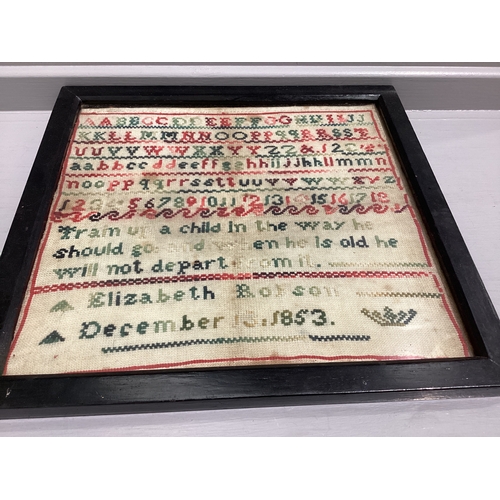 AABBCCDDEEFFGGHHIIJJ
KKLLMMNNOOPPQQRRSST
UUVVWWXXYYZZ&12
aabbccddeeffgghhiijjkkllmmn
nooppqqrrssttuuvvwwxxyz
123 5678910111213 1516171
Tram up a child in the way he
should go and when he is old he
will not depart from it.
Elizabeth Robson
December 1853.